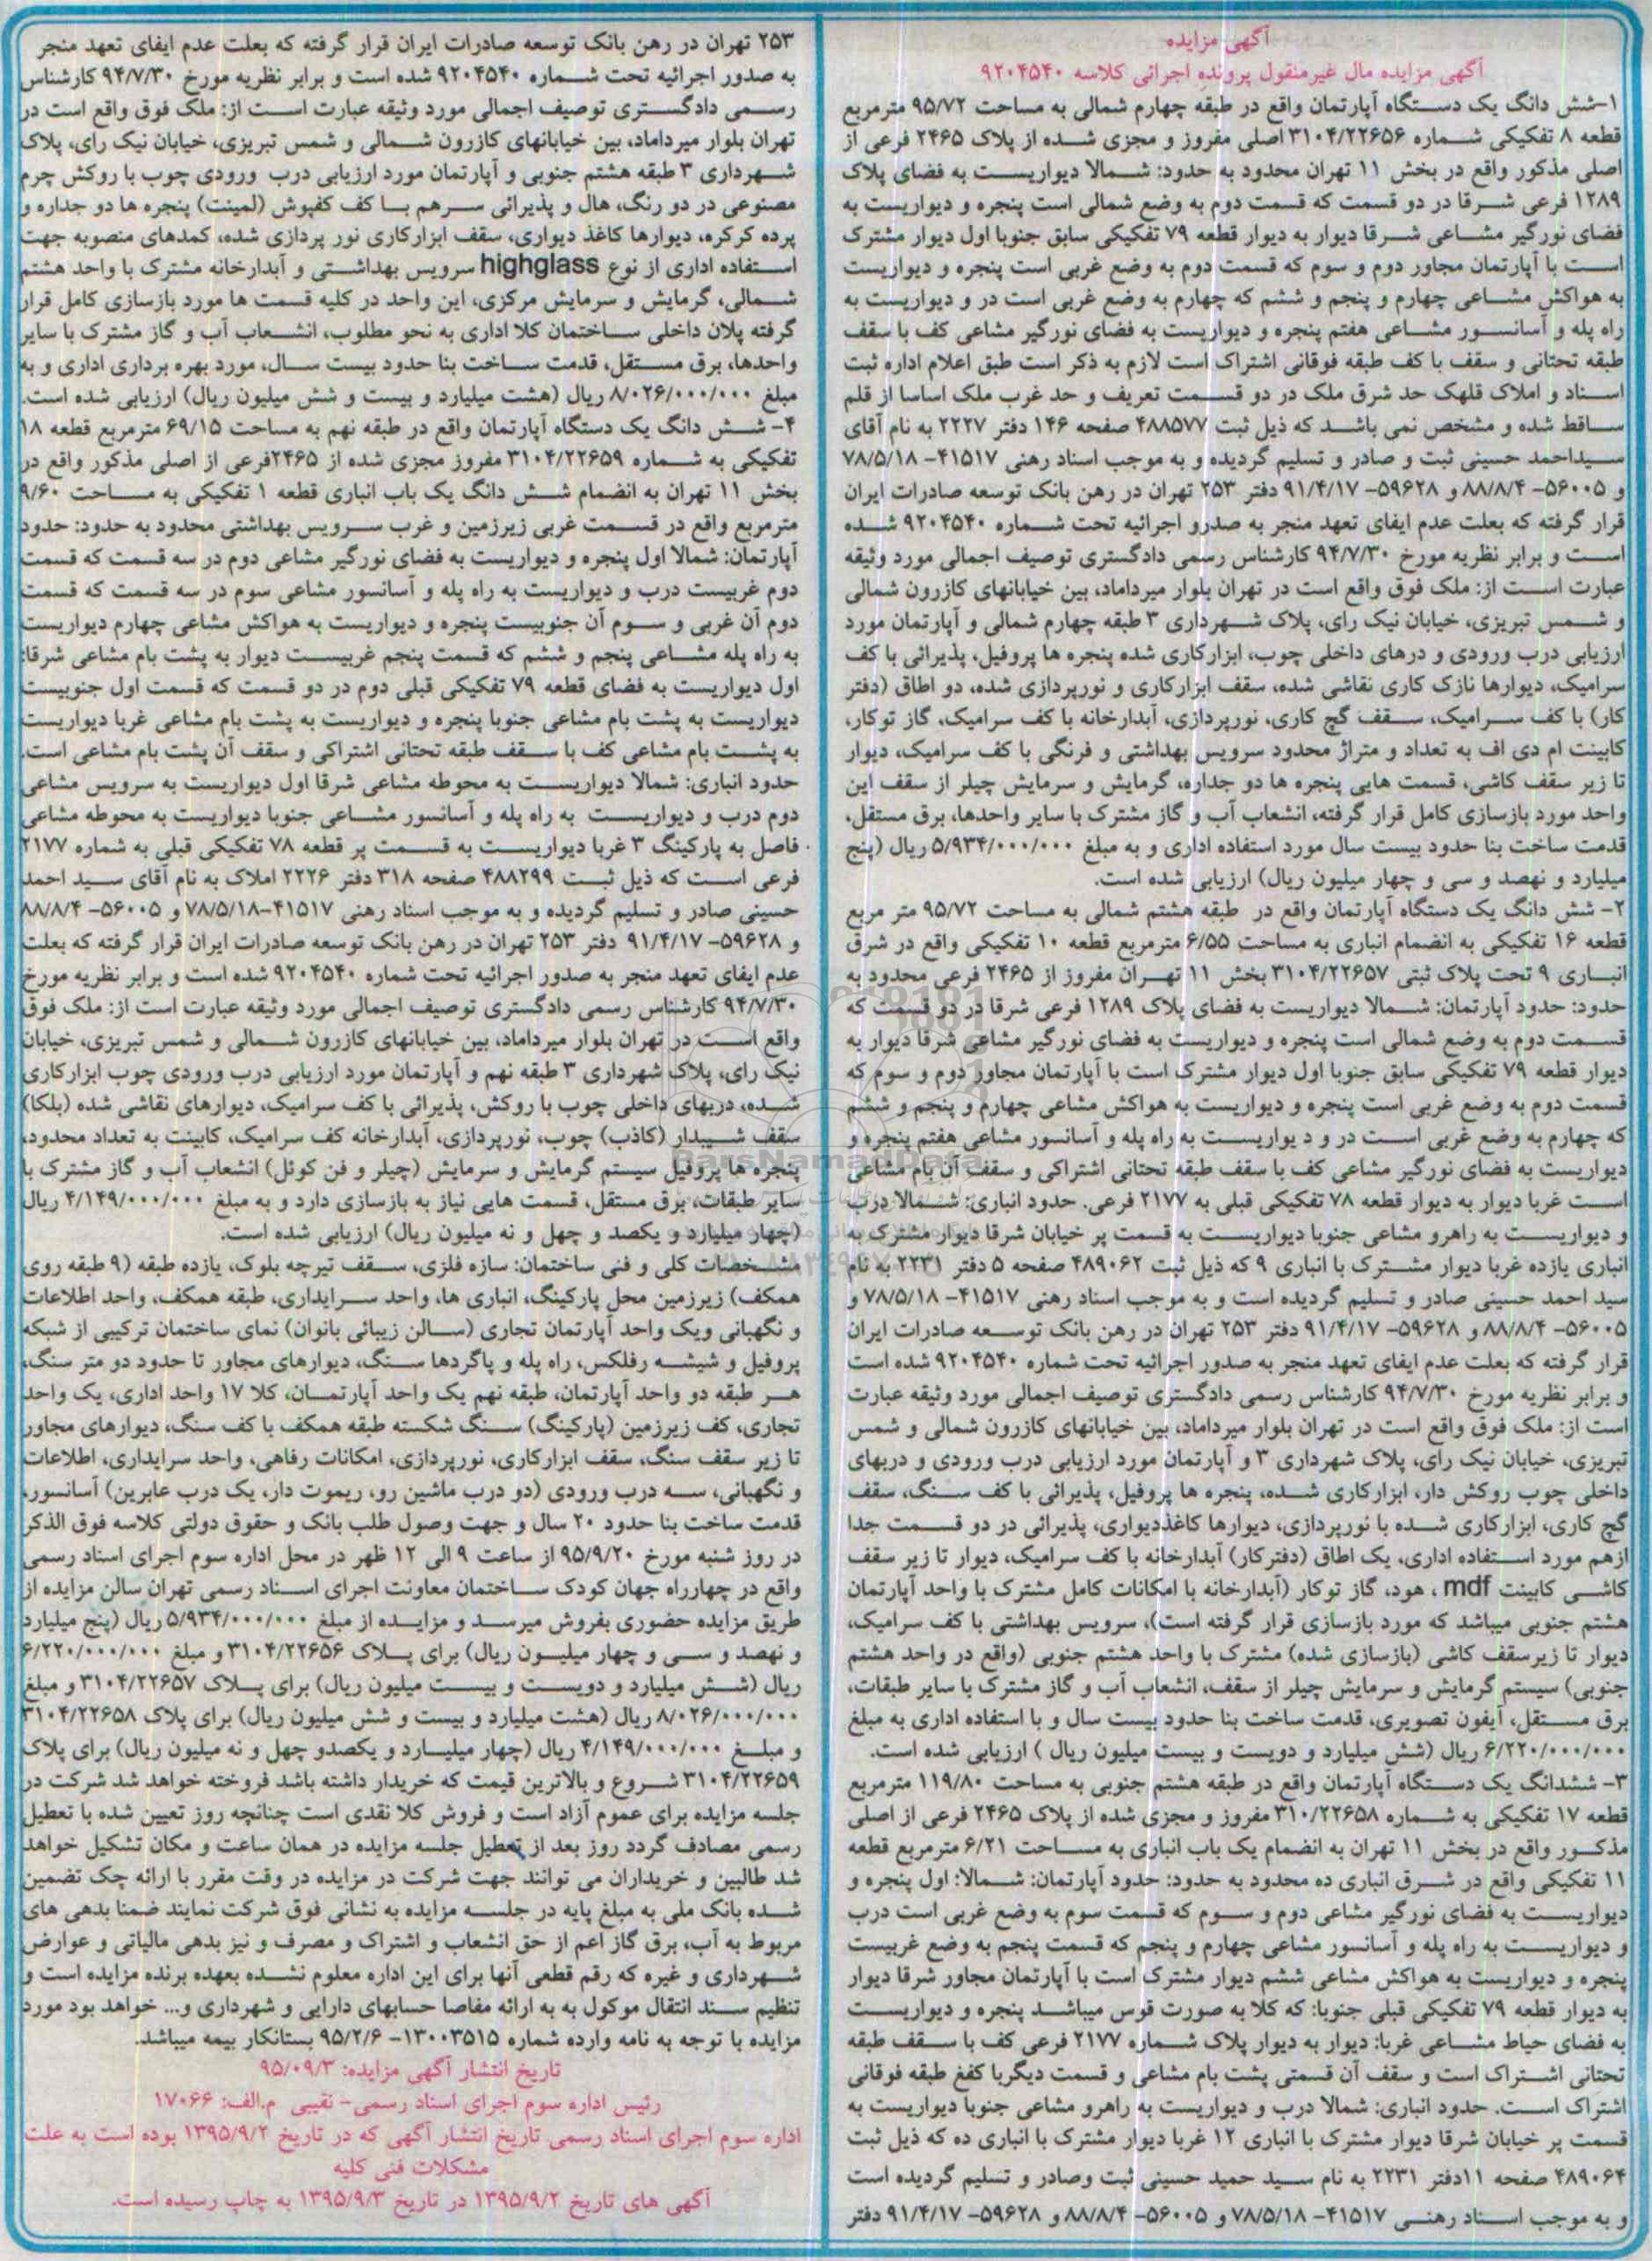 آگهی مزایده
آگهی مزایده مال غیرمنقول پرونده اجرائی کلاسه ۹۲۰۴۵۴۰
۱-شش دانگ یک دستگاه آپارتمان واقع در طبقه چهارم شمالی به مساحت ۹۵/۷۲ مترمربع
قطعه ۸ تفکیکی شماره ۳۱۰۴/۲۲۶۵۶ اصلی مفروز و مجزی شده از پلاک ۲۴۶۵ فرعی از
اصلی مذکور واقع در بخش ۱۱ تهران محدود به حدود: شمالا دیواریست به فضای پلاک
۱۲۸۹ فرعی شرقا در دو قسمت که قسمت دوم به وضع شمالی است پنجره و دیواریست به
فضای نورگیر مشاعی شرقا دیوار به دیوار قطعه ۷۹ تفکیکی سابق جنوبا اول دیوار مشترک
است با آپارتمان مجاور دوم و سوم که قسمت دوم به وضع غربی است پنجره و دیواریست
به هواکش مشاعی چهارم و پنجم و ششم که چهارم به وضع غربی است در و دیواریست به
راه پله و آسانسور مشاعی هفتم پنجره و دیواریست به فضای نورگیر مشاعی کف با سقف
طبقه تحتانی و سقف با کف طبقه فوقانی اشتراک است لازم به ذکر است طبق اعلام اداره ثبت
اسناد و املاک قلهک حد شرق ملک در دو قسمت تعریف و حد غرب ملک اساسا از قلم
ساقط شده و مشخص نمی باشد که ذیل ثبت ۴۸۸۵۷۷ صفحه ۱۴۶ دفتر ۲۲۲۷ به نام آقای
سیداحمد حسینی ثبت و صادر و تسلیم گردیده و به موجب اسناد رهنی ۴۱۵۱۷- ۷۸/۵/۱۸
و ۵۶۰۰۵- ۸۸/۸/۴ و ۵۹۶۲۸- ۹۱/۴/۱۷ دفتر ۲۵۳ تهران در رهن بانک توسعه صادرات ایران
قرار گرفته که بعلت عدم ایفای تعهد منجر به صدرو اجرائیه تحت شماره ۹۲۰۴۵۴۰ شده
است و برابر نظریه مورخ ۹۴/۷/۳۰ کارشناس رسمی دادگستری توصیف اجمالی مورد وثیقه
عبارت است از: ملک فوق واقع است در تهران بلوار میرداماد، بین خیابانهای کازرون شمالی
و شمس تبریزی، خیابان نیک رای، پلاک شهرداری ۳ طبقه چهارم شمالی و آپارتمان مورد
ارزیابی درب ورودی و درهای داخلی چوب، ابزارکاری شده پنجره ها پروفیل، پذیرائی با کف
سرامیک، دیوارها نازک کاری نقاشی شده، سقف ابزارکاری و نورپردازی شده، دو اطاق (دفتر
کار) با کف سرامیک، سقف گچ کاری، نورپردازی، آبدارخانه با کف سرامیک، گاز توکار،
کابینت ام دی اف به تعداد و متراژ محدود سرویس بهداشتی و فرنگی با کف سرامیک، دیوار
تا زیر سقف کاشی، قسمت هایی پنجره ها دو جداره، گرمایش و سرمایش چیلر از سقف این
واحد مورد بازسازی کامل قرار گرفته، انشعاب آب و گاز مشترک با سایر واحدها، برق مستقل،
قدمت ساخت بنا حدود بیست سال مورد استفاده اداری و به مبلغ ۵/۹۳۴/۰۰۰/۰۰۰ ریال (پنج
میلیارد و نهصد و سی و چهار میلیون ریال) ارزیابی شده است.
۲- شش دانگ یک دستگاه آپارتمان واقع در طبقه هشتم شمالی به مساحت ۹۵/۷۲ متر مربع
قطعه ۱۶ تفکیکی به انضمام انباری به مساحت ۶/۵۵ مترمربع قطعه ۱۰ تفکیکی واقع در شرق
انباری ۹ تحت پلاک ثبتی ۳۱۰۴/۲۲۶۵۷ بخش ۱۱ تهران مفروز از ۲۴۶۵ فرعی محدود به
حدود: حدود آپارتمان: شمالا دیواریست به فضای پلاک ۱۲۸۹ فرعی شرقا در دو قسمت که
قسمت دوم به وضع شمالی است پنجره و دیواریست به فضای نورگیر مشاعی شرقا دیوار به
دیوار قطعه ۷۹ تفکیکی سابق جنوبا اول دیوار مشترک است با آپارتمان مجاور دوم و سوم که
قسمت دوم به وضع غربی است پنجره و دیواریست به هواکش مشاعی چهارم و پنجم و ششم
که چهارم به وضع غربی است در و دیواریست به راه پله و آسانسور مشاعی هفتم پنجره و
دیواریست به فضای نورگیر مشاعی کف با سقف طبقه تحتانی اشتراکی و سقف آن بام مشاعی
است غربا دیوار به دیوار قطعه ۷۸ تفکیکی قبلی به ۲۱۷۷ فرعی. حدود انباری: شمالا درب
و دیواریست به راهرو مشاعی جنوبا دیواریست به قسمت پر خیابان شرقا دیوار مشترک به
انباری یازده غربا دیوار مشترک با انباری ۹ که ذیل ثبت ۴۸۹۰۶۲ صفحه ۵ دفتر ۲۲۳۱ به نام
سید احمد حسینی صادر و تسلیم گردیده است و به موجب اسناد رهنی ۴۱۵۱۷- ۷۸/۵/۱۸ و
۵۶۰۰۵- ۸۸/۸/۴ و ۵۹۶۲۸- ۹۱/۴/۱۷ دفتر ۲۵۳ تهران در رهن بانک توسعه صادرات ایران
قرار گرفته که بعلت عدم ایفای تعهد منجر به صدور اجرائیه تحت شماره ۹۲۰۴۵۴۰ شده است
و برابر نظریه مورخ ۹۴/۷/۳۰ کارشناس رسمی دادگستری توصیف اجمالی مورد وثیقه عبارت
است از: ملک فوق واقع است در تهران بلوار میرداماد، بین خیابانهای کازرون شمالی و شمس
تبریزی، خیابان نیک رای، پلاک شهرداری ۳ و آپارتمان مورد ارزیابی درب ورودی و دربهای
داخلی چوب روکش دار، ابزارکاری شده، پنجره ها پروفیل، پذیرائی با کف سنگ، سقف
گچ کاری، ابزارکاری شده با نورپردازی، دیوارها کاغذدیواری، پذیرائی در دو قسمت جدا
ازهم مورد استفاده اداری، یک اطاق (دفترکار) آبدارخانه با کف سرامیک، دیوار تا زیر سقف
کاشی کابینت mdf ، هود، گاز توکار (آبدارخانه با امکانات کامل مشترک با واحد آپارتمان
هشتم جنوبی میباشد که مورد بازسازی قرار گرفته است)، سرویس بهداشتی با کف سرامیک،
دیوار تا زیرسقف کاشی (بازسازی شده) مشترک با واحد هشتم جنوبی (واقع در واحد هشتم
جنوبی) سیستم گرمایش و سرمایش چیلر از سقف، انشعاب آب و گاز مشترک با سایر طبقات،
برق مستقل، آیفون تصویری، قدمت ساخت بنا حدود بیست سال و با استفاده اداری به مبلغ
۶/۲۲۰/۰۰۰/۰۰۰ ریال (شش میلیارد و دویست و بیست میلیون ریال ) ارزیابی شده است.
۳- ششدانگ یک دستگاه آپارتمان واقع در طبقه هشتم جنوبی به مساحت ۱۱۹/۸۰ مترمربع
قطعه ۱۷ تفکیکی به شماره ۳۱۰/۲۲۶۵۸ مفروز و مجزی شده از پلاک ۲۴۶۵ فرعی از اصلی
مذکور واقع در بخش ۱۱ تهران به انضمام یک باب انباری به مساحت ۶/۲۱ مترمربع قطعه
۱۱ تفکیکی واقع در شرق انباری ده محدود به حدود: حدود آپارتمان: شمالا: اول پنجره و
دیواریست به فضای نورگیر مشاعی دوم و سوم که قسمت سوم به وضع غربی است درب
و دیواریست به راه پله و آسانسور مشاعی چهارم و پنجم که قسمت پنجم به وضع غربیست
پنجره و دیواریست به هواکش مشاعی ششم دیوار مشترک است با آپارتمان مجاور شرقا دیوار
به دیوار قطعه ۷۹ تفکیکی قبلی جنوبا: که کلا به صورت قوس میباشد پنجره و دیواریست
به فضای حیاط مشاعی غربا: دیوار به دیوار پلاک شماره ۲۱۷۷ فرعی کف با سقف طبقه
تحتانی اشتراک است و سقف آن قسمتی پشت بام مشاعی و قسمت دیگربا کفغ طبقه فوقانی
اشتراک است. حدود انباری: شمالا درب و دیواریست به راهرو مشاعی جنوبا دیواریست به
قسمت پر خیابان شرقا دیوار مشترک با انباری ۱۲ غربا دیوار مشترک با انباری ده که ذیل ثبت
۴۸۹۰۶۴ صفحه ۱۱دفتر ۲۲۳۱ به نام سید حمید حسینی ثبت وصادر و تسلیم گردیده است
و به موجب اسناد رهنی ۴۱۵۱۷- ۷۸/۵/۱۸ و ۵۶۰۰۵- ۸۸/۸/۴ و ۵۹۶۲۸- ۹۱/۴/۱۷ دفتر
۲۵۳ تهران در رهن بانک توسعه صادرات ایران قرار گرفته که بعلت عدم ایفای تعهد منجر
به صدور اجرائیه تحت شماره ۹۲۰۴۵۴۰ شده است و برابر نظریه مورخ ۹۴/۷/۳۰ کارشناس
رسمی دادگستری توصیف اجمالی مورد وثیقه عبارت است از: ملک فوق واقع است در
تهران بلوار میرداماد، بین خیابانهای کازرون شمالی و شمس تبریزی، خیابان نیک رای، پلاک
شهرداری ۳ طبقه هشتم جنوبی و آپارتمان مورد ارزیابی درب ورودی چوب با روکش چرم
مصنوعی در دو رنگ، هال و پذیرائی سرهم با کف کفپوش (لمینت) پنجره ها دو جداره و
پرده کرکره، دیوارها کاغذ دیواری، سقف ابزارکاری نور پردازی شده، کمدهای منصوبه جهت
استفاده اداری از نوع highglass سرویس بهداشتی و آبدارخانه مشترک با واحد هشتم
شمالی، گرمایش و سرمایش مرکزی، این واحد در کلیه قسمت ها مورد بازسازی کامل قرار
گرفته پلان داخلی ساختمان کلا اداری به نحو مطلوب، انشعاب آب و گاز مشترک با سایر
واحدها، برق مستقل، قدمت ساخت بنا حدود بیست سال، مورد بهره برداری اداری و به
مبلغ ۸/۰۲۶/۰۰۰/۰۰۰ ریال (هشت میلیارد و بیست و شش میلیون ریال) ارزیابی شده است.
۴- شش دانگ یک دستگاه آپارتمان واقع در طبقه نهم به مساحت ۶۹/۱۵ مترمربع قطعه ۱۸
تفکیکی به شماره ۳۱۰۴/۲۲۶۵۹ مفروز مجزی شده از ۲۴۶۵فرعی از اصلی مذکور واقع در
بخش ۱۱ تهران به انضمام شش دانگ یک باب انباری قطعه ۱ تفکیکی به مساحت ۹/۶۰
مترمربع واقع در قسمت غربی زیرزمین و غرب سرویس بهداشتی محدود به حدود: حدود
آپارتمان: شمالا اول پنجره و دیواریست به فضای نورگیر مشاعی دوم در سه قسمت که قسمت
دوم غربیست درب و دیواریست به راه پله و آسانسور مشاعی سوم در سه قسمت که قسمت
دوم آن غربی و سوم آن جنوبیست پنجره و دیواریست به هواکش مشاعی چهارم دیواریست
به راه پله مشاعی پنجم و ششم که قسمت پنجم غربیست دیوار به پشت بام مشاعی شرقا:
اول دیواریست به فضای قطعه ۷۹ تفکیکی قبلی دوم در دو قسمت که قسمت اول جنوبیست
دیواریست به پشت بام مشاعی جنوبا پنجره و دیواریست به پشت بام مشاعی غربا دیواریست
به پشت بام مشاعی کف با سقف طبقه تحتانی اشتراکی و سقف آن پشت بام مشاعی است.
حدود انباری: شمالا دیواریست به محوطه مشاعی شرقا اول دیواریست به سرویس مشاعی
دوم درب و دیواریست به راه پله و آسانسور مشاعی جنوبا دیواریست به محوطه مشاعی
فاصل به پارکینگ ۳ غربا دیواریست به قسمت پر قطعه ۷۸ تفکیکی قبلی به شماره ۲۱۷۷
فرعی است که ذیل ثبت ۴۸۸۲۹۹ صفحه ۳۱۸ دفتر ۲۲۲۶ املاک به نام آقای سید احمد
حسینی صادر و تسلیم گردیده و به موجب اسناد رهنی ۴۱۵۱۷-۷۸/۵/۱۸ و ۵۶۰۰۵- ۸۸/۸/۴
و ۵۹۶۲۸- ۹۱/۴/۱۷ دفتر ۲۵۳ تهران در رهن بانک توسعه صادرات ایران قرار گرفته که بعلت
عدم ایفای تعهد منجر به صدور اجرائیه تحت شماره ۹۲۰۴۵۴۰ شده است و برابر نظریه مورخ
۹۴/۷/۳۰ کارشناس رسمی دادگستری توصیف اجمالی مورد وثیقه عبارت است از: ملک فوق
واقع است در تهران بلوار میرداماد، بین خیابانهای کازرون شمالی و شمس تبریزی، خیابان
نیک رای، پلاک شهرداری ۳ طبقه نهم و آپارتمان مورد ارزیابی درب ورودی چوب ابزارکاری
شده، دربهای داخلی چوب با روکش، پذیرائی با کف سرامیک، دیوارهای نقاشی شده (بلکا)
سقف شیبدار (کاذب) چوب، نورپردازی، آبدارخانه کف سرامیک، کابینت به تعداد محدود،
پنجره ها پروفیل سیستم گرمایش و سرمایش (چیلر و فن کوئل) انشعاب آب و گاز مشترک با
سایر طبقات، برق مستقل، قسمت هایی نیاز به بازسازی دارد و به مبلغ ۴/۱۴۹/۰۰۰/۰۰۰ ریال
(چهار میلیارد و یکصد و چهل و نه میلیون ریال) ارزیابی شده است.
مشخصات کلی و فنی ساختمان: سازه فلزی، سقف تیرچه بلوک، یازده طبقه (۹ طبقه روی
همکف) زیرزمین محل پارکینگ، انباری ها، واحد سرایداری، طبقه همکف، واحد اطلاعات
و نگهبانی ویک واحد آپارتمان تجاری (سالن زیبائی بانوان) نمای ساختمان ترکیبی از شبکه
پروفیل و شیشه رفلکس، راه پله و پاگردها سنگ، دیوارهای مجاور تا حدود دو متر سنگ،
هر طبقه دو واحد آپارتمان، طبقه نهم یک واحد آپارتمان، کلا ۱۷ واحد اداری، یک واحد
تجاری، کف زیرزمین (پارکینگ) سنگ شکسته طبقه همکف با کف سنگ، دیوارهای مجاور
تا زیر سقف سنگ، سقف ابزارکاری، نورپردازی، امکانات رفاهی، واحد سرایداری، اطلاعات
و نگهبانی، سه درب ورودی (دو درب ماشین رو، ریموت دار، یک درب عابرین) آسانسور،
قدمت ساخت بنا حدود ۲۰ سال و جهت وصول طلب بانک و حقوق دولتی کلاسه فوق الذکر
در روز شنبه مورخ ۹۵/۹/۲۰ از ساعت ۹ الی ۱۲ ظهر در محل اداره سوم اجرای اسناد رسمی
واقع در چهارراه جهان کودک ساختمان معاونت اجرای اسناد رسمی تهران سالن مزایده از
طریق مزایده حضوری بفروش میرسد و مزایده از مبلغ ۵/۹۳۴/۰۰۰/۰۰۰ ریال (پنج میلیارد
و نهصد و سی و چهار میلیون ریال) برای پلاک ۳۱۰۴/۲۲۶۵۶ و مبلغ ۶/۲۲۰/۰۰۰/۰۰۰
ریال (شش میلیارد و دویست و بیست میلیون ریال) برای پلاک ۳۱۰۴/۲۲۶۵۷ و مبلغ
۸/۰۲۶/۰۰۰/۰۰۰ ریال (هشت میلیارد و بیست و شش میلیون ریال) برای پلاک ۳۱۰۴/۲۲۶۵۸
و مبلغ ۴/۱۴۹/۰۰۰/۰۰۰ ریال (چهار میلیارد و یکصدو چهل و نه میلیون ریال) برای پلاک
۳۱۰۴/۲۲۶۵۹ شروع و بالاترین قیمت که خریدار داشته باشد فروخته خواهد شد شرکت در
جلسه مزایده برای عموم آزاد است و فروش کلا نقدی است چنانچه روز تعیین شده با تعطیل
رسمی مصادف گردد روز بعد از تعطیل جلسه مزایده در همان ساعت و مکان تشکیل خواهد
شد طالبین و خریداران می توانند جهت شرکت در مزایده در وقت مقرر با ارائه چک تضمین
شده بانک ملی به مبلغ پایه در جلسه مزایده به نشانی فوق شرکت نمایند ضمنا بدهی های
مربوط به آب، برق گاز اعم از حق انشعاب و اشتراک و مصرف و نیز بدهی مالیاتی و عوارض
شهرداری و غیره که رقم قطعی آنها برای این اداره معلوم نشده بعهده برنده مزایده است و
تنظیم سند انتقال موکول به به ارائه مفاصا حسابهای دارایی و شهرداری و... خواهد بود مورد
مزایده با توجه به نامه وارده شماره ۱۳۰۰۳۵۱۵- ۹۵/۲/۶ بستانکار بیمه میباشد.
تاریخ انتشار آگهی مزایده: ۹۵/۰۹/۳
رئیس اداره سوم اجرای اسناد رسمی- نقیبی م.الف: ۱۷۰۶۶
اداره سوم اجرای اسناد رسمی تاریخ انتشار آگهی که در تاریخ ۱۳۹۵/۹/۲ بوده است به علت
مشکلات فنی کلیه
آگهی های تاریخ ۱۳۹۵/۹/۲ در تاریخ ۱۳۹۵/۹/۳ به چاپ رسیده است.
ParsNamadData